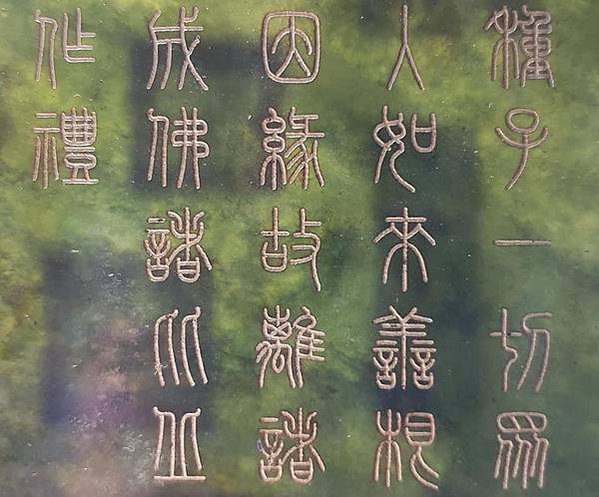 種子一切眾
人如來善根
因緣故離諸
成佛諸比丘
作禮